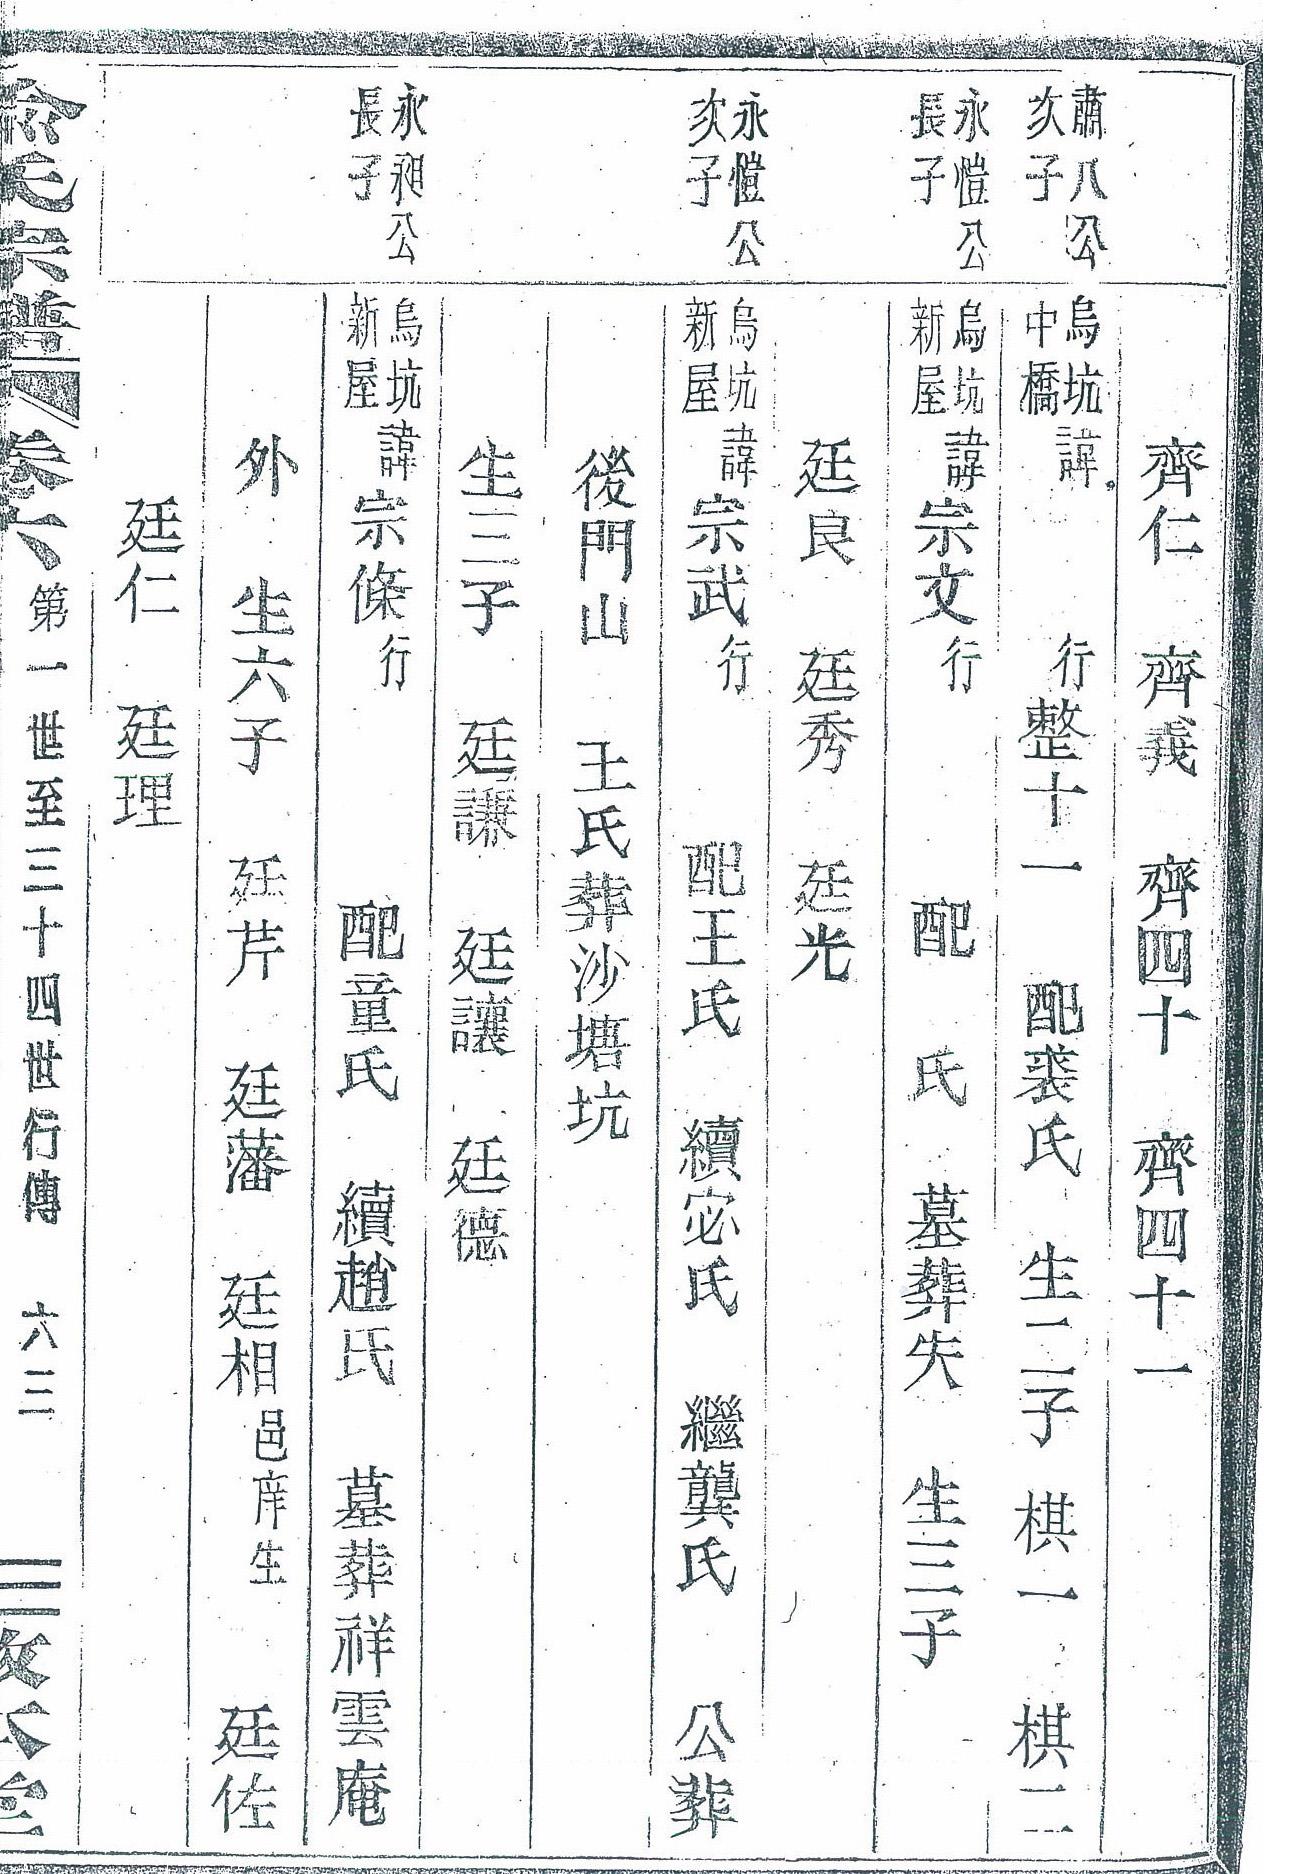 齊仁 齊義 齊四十 齊四十一
肅八公
次子
烏坑
中橋
諱 行整十一 配裘氏 生二子 棋一 棋二
永愷公
長子
烏坑
新屋
諱宗文行 配 氏 墓葬失 生三子
廷良 廷秀 廷光
永愷公
次子
烏坑
新屋
諱宗武行 配王氏 續宓氏 繼龔氏 公葬
後門山 王氏葬沙塘坑
生三子 廷謙 廷讓 廷德
永昶公
長子
烏坑
新屋
諱宗條行 配童氏 續趙氏 墓葬祥雲庵
外 生六子 廷芹 廷藩 廷相邑庠生 廷佐
廷仁 廷理
氏宗譜 卷六 第一世至三十四世行傳 六三